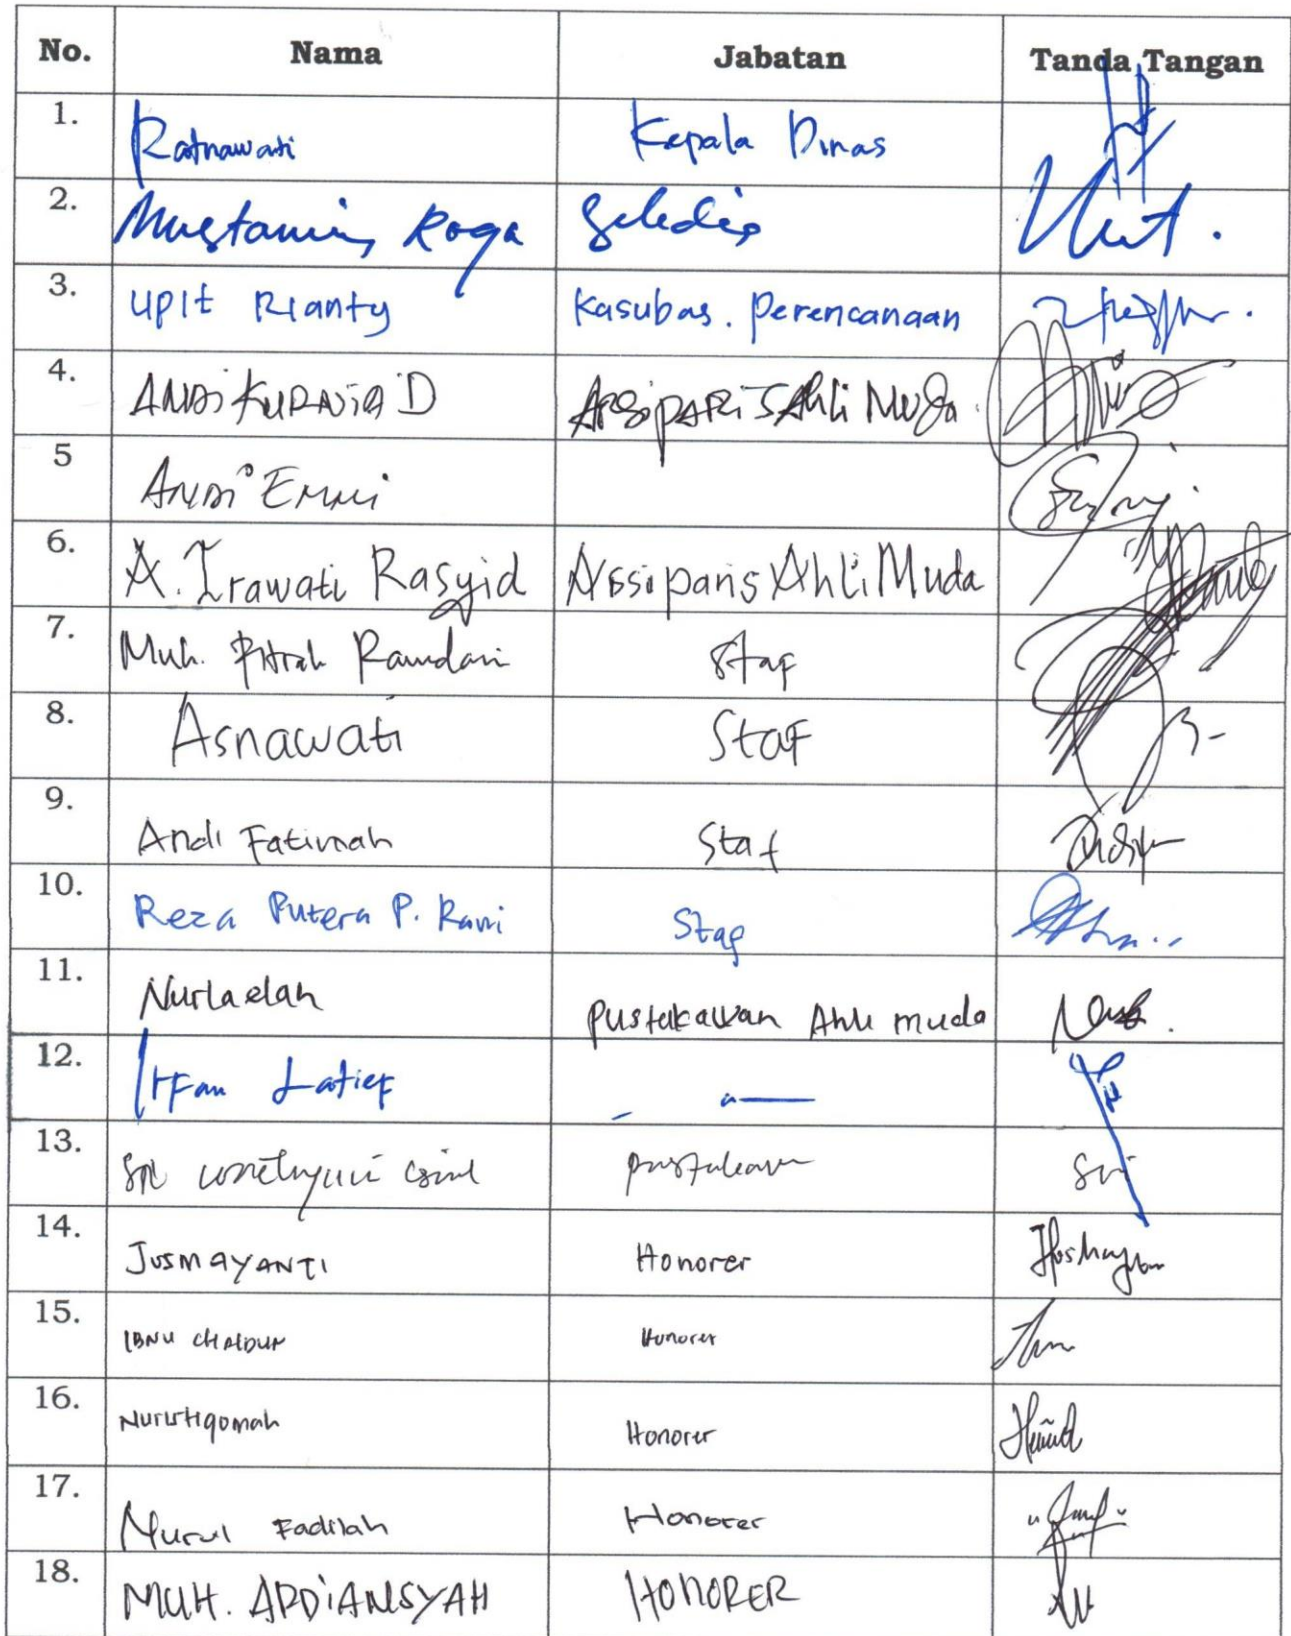 No. Nama Jabatan Tanda Tangan
1. Ratnawati Kepala Dinas
2. Mustamin Raga
3. Upit Rianty Kasubag. Perencanaan
4. ANDi KURNiA D ARSipARiS Ahli Muda
5 ANDi Erni
6. A. Irawati Rasyid Arsiparis Ahli Muda
7. Muh. Fitrah Ramdani Staf
8. Asnawati Staf
9. Andi Fatimah Staf
10. Reza Putera P. Rani Staf
11. Nurlaelah Pustakawan Ahli muda
12. Irfan Latief
13. Sri pustakawan Sri
14. JUSMAYANTI Honorer
15. IBNU CHALDUN Honorer
16. Nuristiqomah Honorer
17. Nurul Fadilah Honorer
18. MUH. ARDiANSYAH HONORER